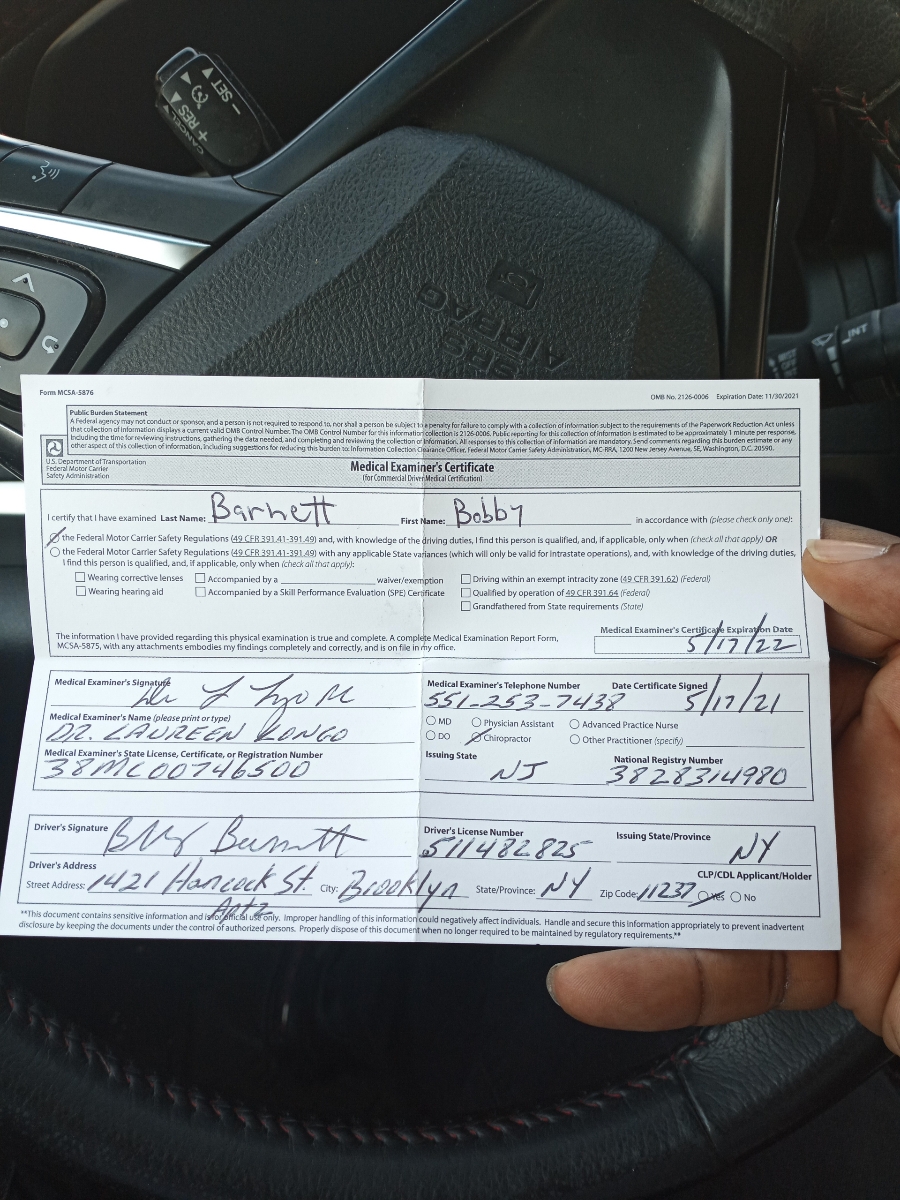 CANCEL
+ RES
- SET
SRS
AIRBAG
INT
Form MCSA-5876
OMB No. 2126-0006 Expiration Date: 11/30/2021
Public Burden Statement
A Federal agency may not conduct or sponsor, and a person is not required to respond to, nor shall a person be subject to a penalty for failure to comply with a collection of information subject to the requirements of the Paperwork Reduction Act unless
that collection of information displays a current valid OMB Control Number. The OMB Control Number for this information collection is 2126-0006. Public reporting for this collection of information is estimated to be approximately 1 minute per response,
including the time for reviewing instructions, gathering the data needed, and completing and reviewing the collection of information. All responses to this collection of information are mandatory. Send comments regarding this burden estimate or any
other aspect of this collection of information, including suggestions for reducing this burden to: Information Collection Clearance Officer, Federal Motor Carrier Safety Administration, MC-RRA, 1200 New Jersey Avenue, SE, Washington, D.C. 20590.
U.S. Department of Transportation
Federal Motor Carrier
Safety Administration
Medical Examiner's Certificate
(for Commercial Driver Medical Certification)
I certify that I have examined Last Name: Barnett First Name: Bobby in accordance with (please check only one):
the Federal Motor Carrier Safety Regulations (49 CFR 391.41-391.49) and, with knowledge of the driving duties, I find this person is qualified, and, if applicable, only when (check all that apply) OR
the Federal Motor Carrier Safety Regulations (49 CFR 391.41-391.49) with any applicable State variances (which will only be valid for intrastate operations), and, with knowledge of the driving duties,
I find this person is qualified, and, if applicable, only when (check all that apply):
Wearing corrective lenses Accompanied by a waiver/exemption Driving within an exempt intracity zone (49 CFR 391.62) (Federal)
Wearing hearing aid Accompanied by a Skill Performance Evaluation (SPE) Certificate Qualified by operation of 49 CFR 391.64 (Federal)
Grandfathered from State requirements (State)
The information I have provided regarding this physical examination is true and complete. A complete Medical Examination Report Form,
MCSA-5875, with any attachments embodies my findings completely and correctly, and is on file in my office.
Medical Examiner's Certificate Expiration Date
5/17/22
Medical Examiner's Signature
Medical Examiner's Telephone Number Date Certificate Signed
551-253-7438 5/17/21
Medical Examiner's Name (please print or type)
DR. LAUREEN KONGO
MD Physician Assistant Advanced Practice Nurse
DO Chiropractor Other Practitioner (specify)
Medical Examiner's State License, Certificate, or Registration Number
38MC00746500
Issuing State National Registry Number
NJ 3828314980
Driver's Signature
Driver's License Number Issuing State/Province
511482825 NY
Driver's Address
CLP/CDL Applicant/Holder
Street Address: 1421 Hancock St. City: Brooklyn State/Province: NY Zip Code: 11237 Yes No
**This document contains sensitive information and is for official use only. Improper handling of this information could negatively affect individuals. Handle and secure this information appropriately to prevent inadvertent
disclosure by keeping the documents under the control of authorized persons. Properly dispose of this document when no longer required to be maintained by regulatory requirements.**